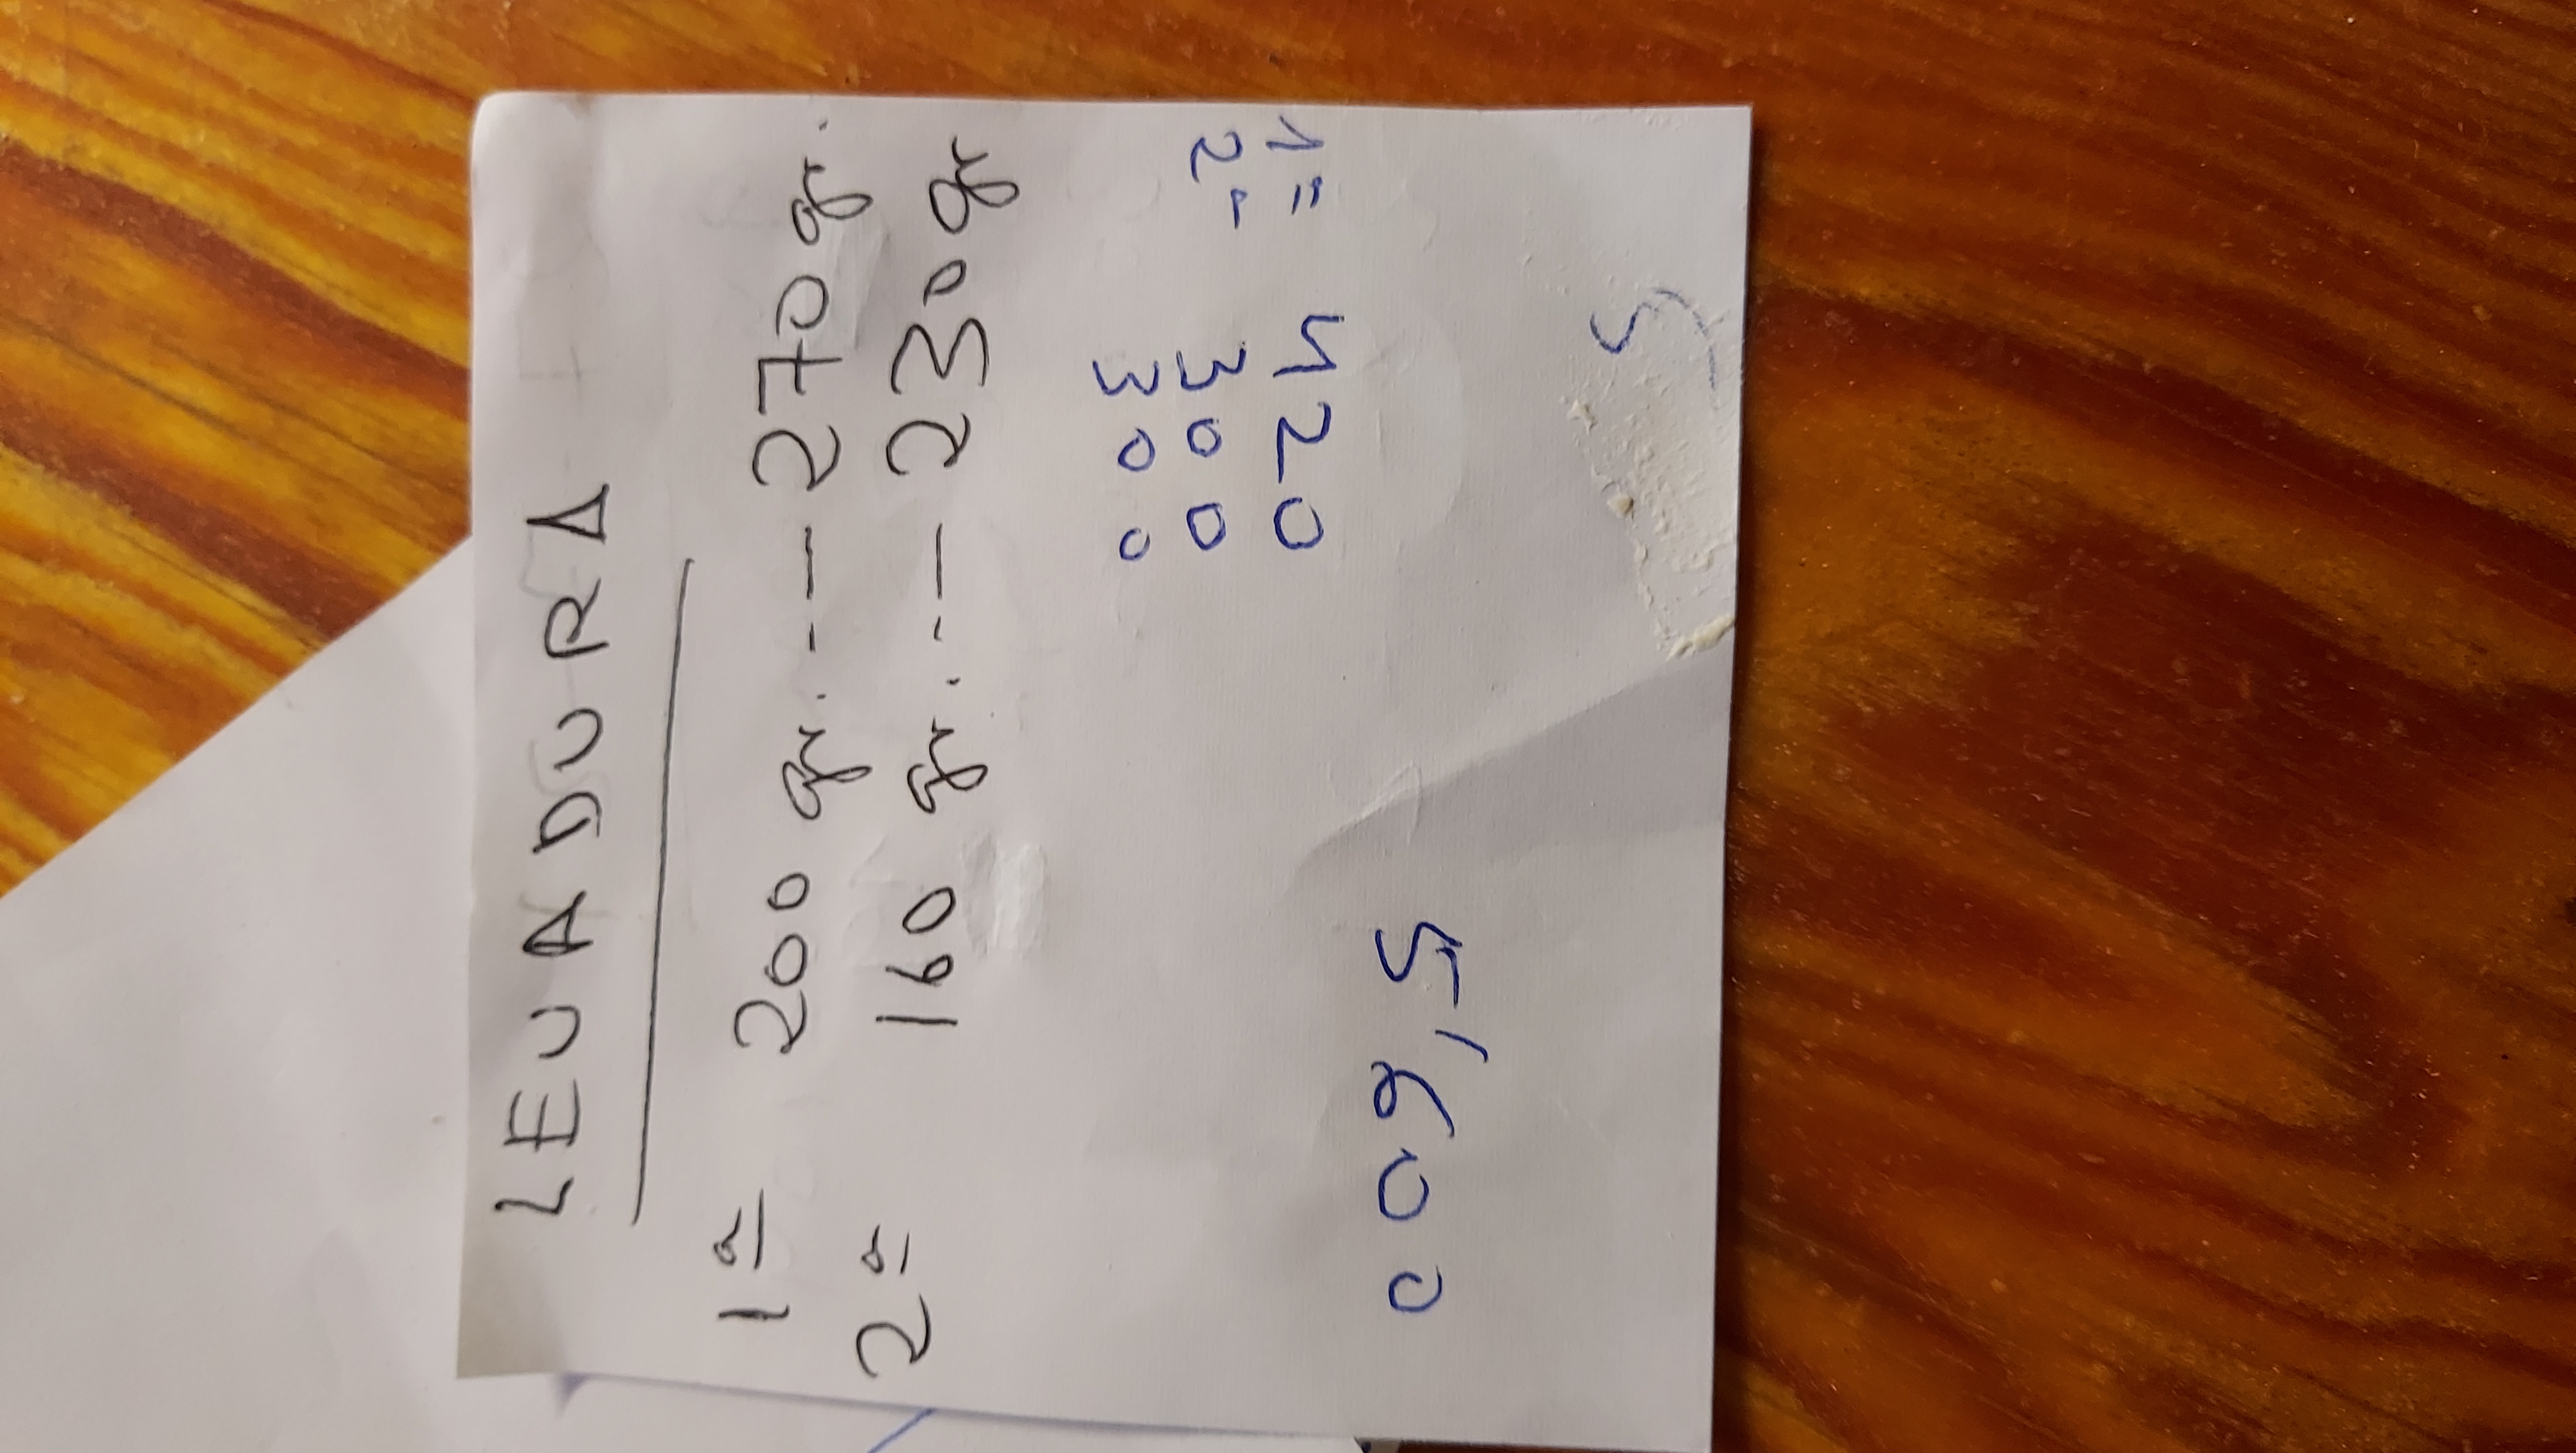 LEVADURA
1ª 200 gr. -- 270 gr.
2ª 160 gr. -- 230 gr
1ª 420
2ª 300
300
5,600
5